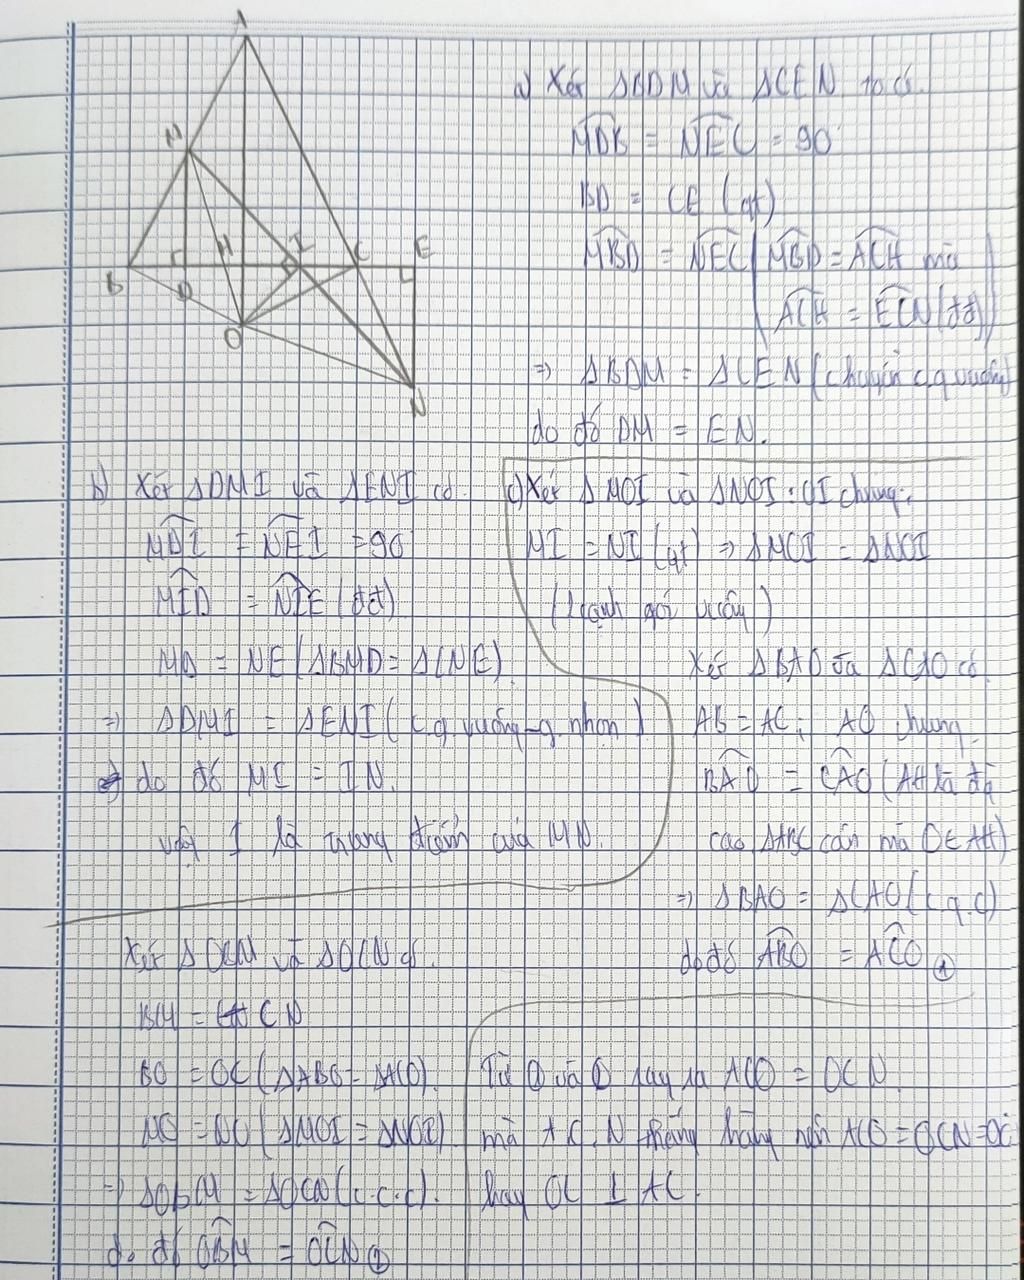 A
M
H
I
C
E
B
D
O
N
a) Xét ΔBDM và ΔCEN ta có.
MDB = NEC = 90°
BD = CE (gt)
MBD = NEC (MBD = ACH mà
ACH = ECN (đđ))
=> ΔBDM = ΔCEN (chuyển c.g vuông)
do đó DM = EN.
b) Xét ΔDMI và ΔENI có.
MDI = NEI = 90°
MID = NIE (đđ)
MD = NE (ΔBMD = ΔCNE)
=> ΔDMI = ΔENI (c.g vuông-g.nhọn)
do đó MI = IN.
vậy I là trung điểm của MN.
c) Xét ΔMOI và ΔNOI: OI chung;
MI = NI (gt) => ΔMOI = ΔNOI
(2 cạnh góc vuông)
Xét ΔBAO và ΔCAO có
AB = AC; AO chung
BAO = CAO (AH là đg
cao ΔABC cân mà O∈AH)
=> ΔBAO = ΔCAO (c.g.c)
do đó ABO = ACO ①
Xét ΔOBM và ΔOCN có.
BM = CN
BO = OC (ΔABO = ΔACO).
MO = NO (ΔMOI = ΔNOI)
=> ΔOBM = ΔOCN (c.c.c).
do đó OBM = OCN ②
Từ ① và ② suy ra ACO = OCN.
mà A, C, N thẳng hàng nên ACO = OCN = 90
hay OC ⊥ AC.